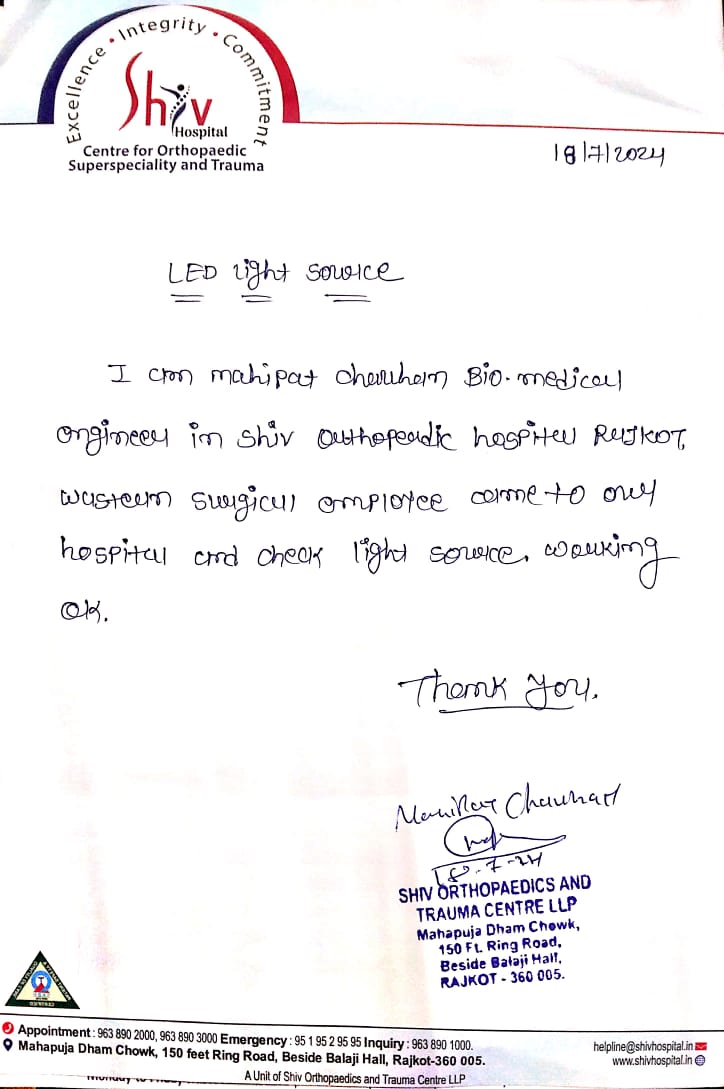 Excellence • Integrity • Commitment
Shiv
Hospital
Centre for Orthopaedic
Superspeciality and Trauma
18/7/2024
LED light source
I am mahipat chauhan Bio-medical
engineer in shiv orthopeadic hospital RAJKOT,
wasteern surgical employee came to our
hospital and check light source. working
ok.
Thank you.
Mahipat Chauhan
18-7-24
SHIV ORTHOPAEDICS AND
TRAUMA CENTRE LLP
Mahapuja Dham Chowk,
150 Ft. Ring Road,
Beside Balaji Hall,
RAJKOT - 360 005.
Appointment : 963 890 2000, 963 890 3000 Emergency : 95 1 95 2 95 95 Inquiry : 963 890 1000.
helpline@shivhospital.in
Mahapuja Dham Chowk, 150 feet Ring Road, Beside Balaji Hall, Rajkot-360 005.
www.shivhospital.in
A Unit of Shiv Orthopaedics and Trauma Centre LLP